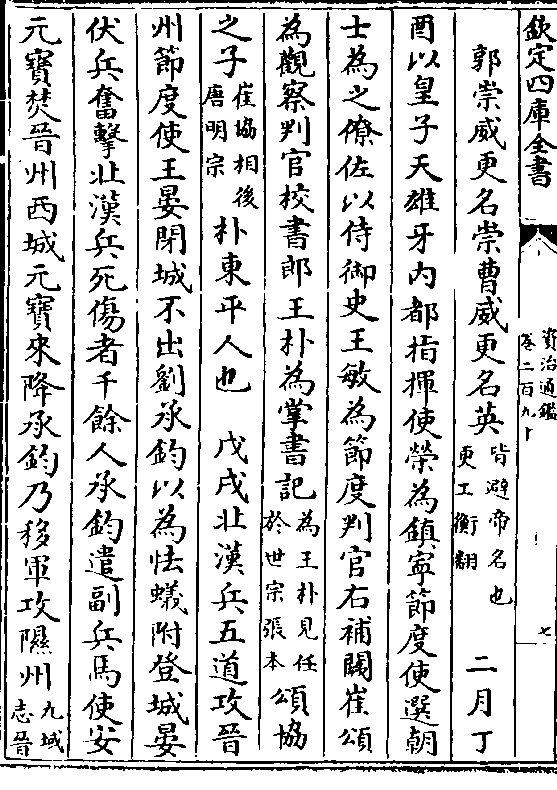 欽定四庫全書
資治通鑑
卷二百九十
七
郭崇威更名崇曹威更名英皆避帝名也更工衡翻 二月丁
酉以皇子天雄牙內都指揮使榮為鎮寧節度使選朝
士為之僚佐以侍御史王敏為節度判官右補闕崔頌
為觀察判官校書郎王朴為掌書記為王朴見任於世宗張本 頌協
之子崔協相後唐明宗 朴東平人也 戊戌北漢兵五道攻晉
州節度使王晏閉城不出劉承鈞以為怯蟻附登城晏
伏兵奮擊北漢兵死傷者千餘人承鈞遣副兵馬使安
元寶焚晉州西城元寶來降承鈞乃移軍攻隰州九域志晉